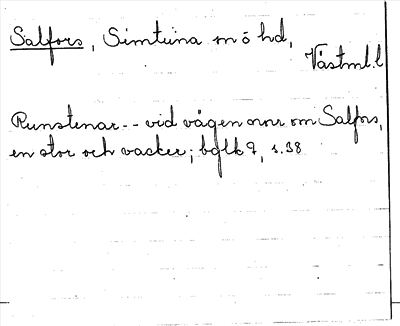 Salfors, Simtuna m ö hd,
Västml.l
Runstenar -- vid vägen norr om Salfors,
en stor och vacker; bglk 9, s. 38